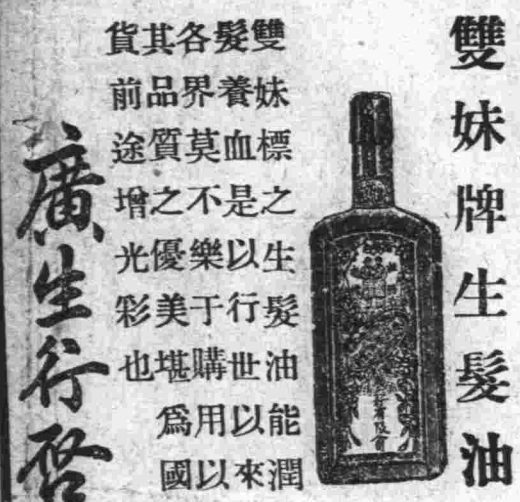 雙妹牌生髮油
雙妹標之生髮油能潤
髮養血是以行世以來
各界莫不樂于購用以
其品質之優美堪爲國
貨前途增光彩也
廣生行啓